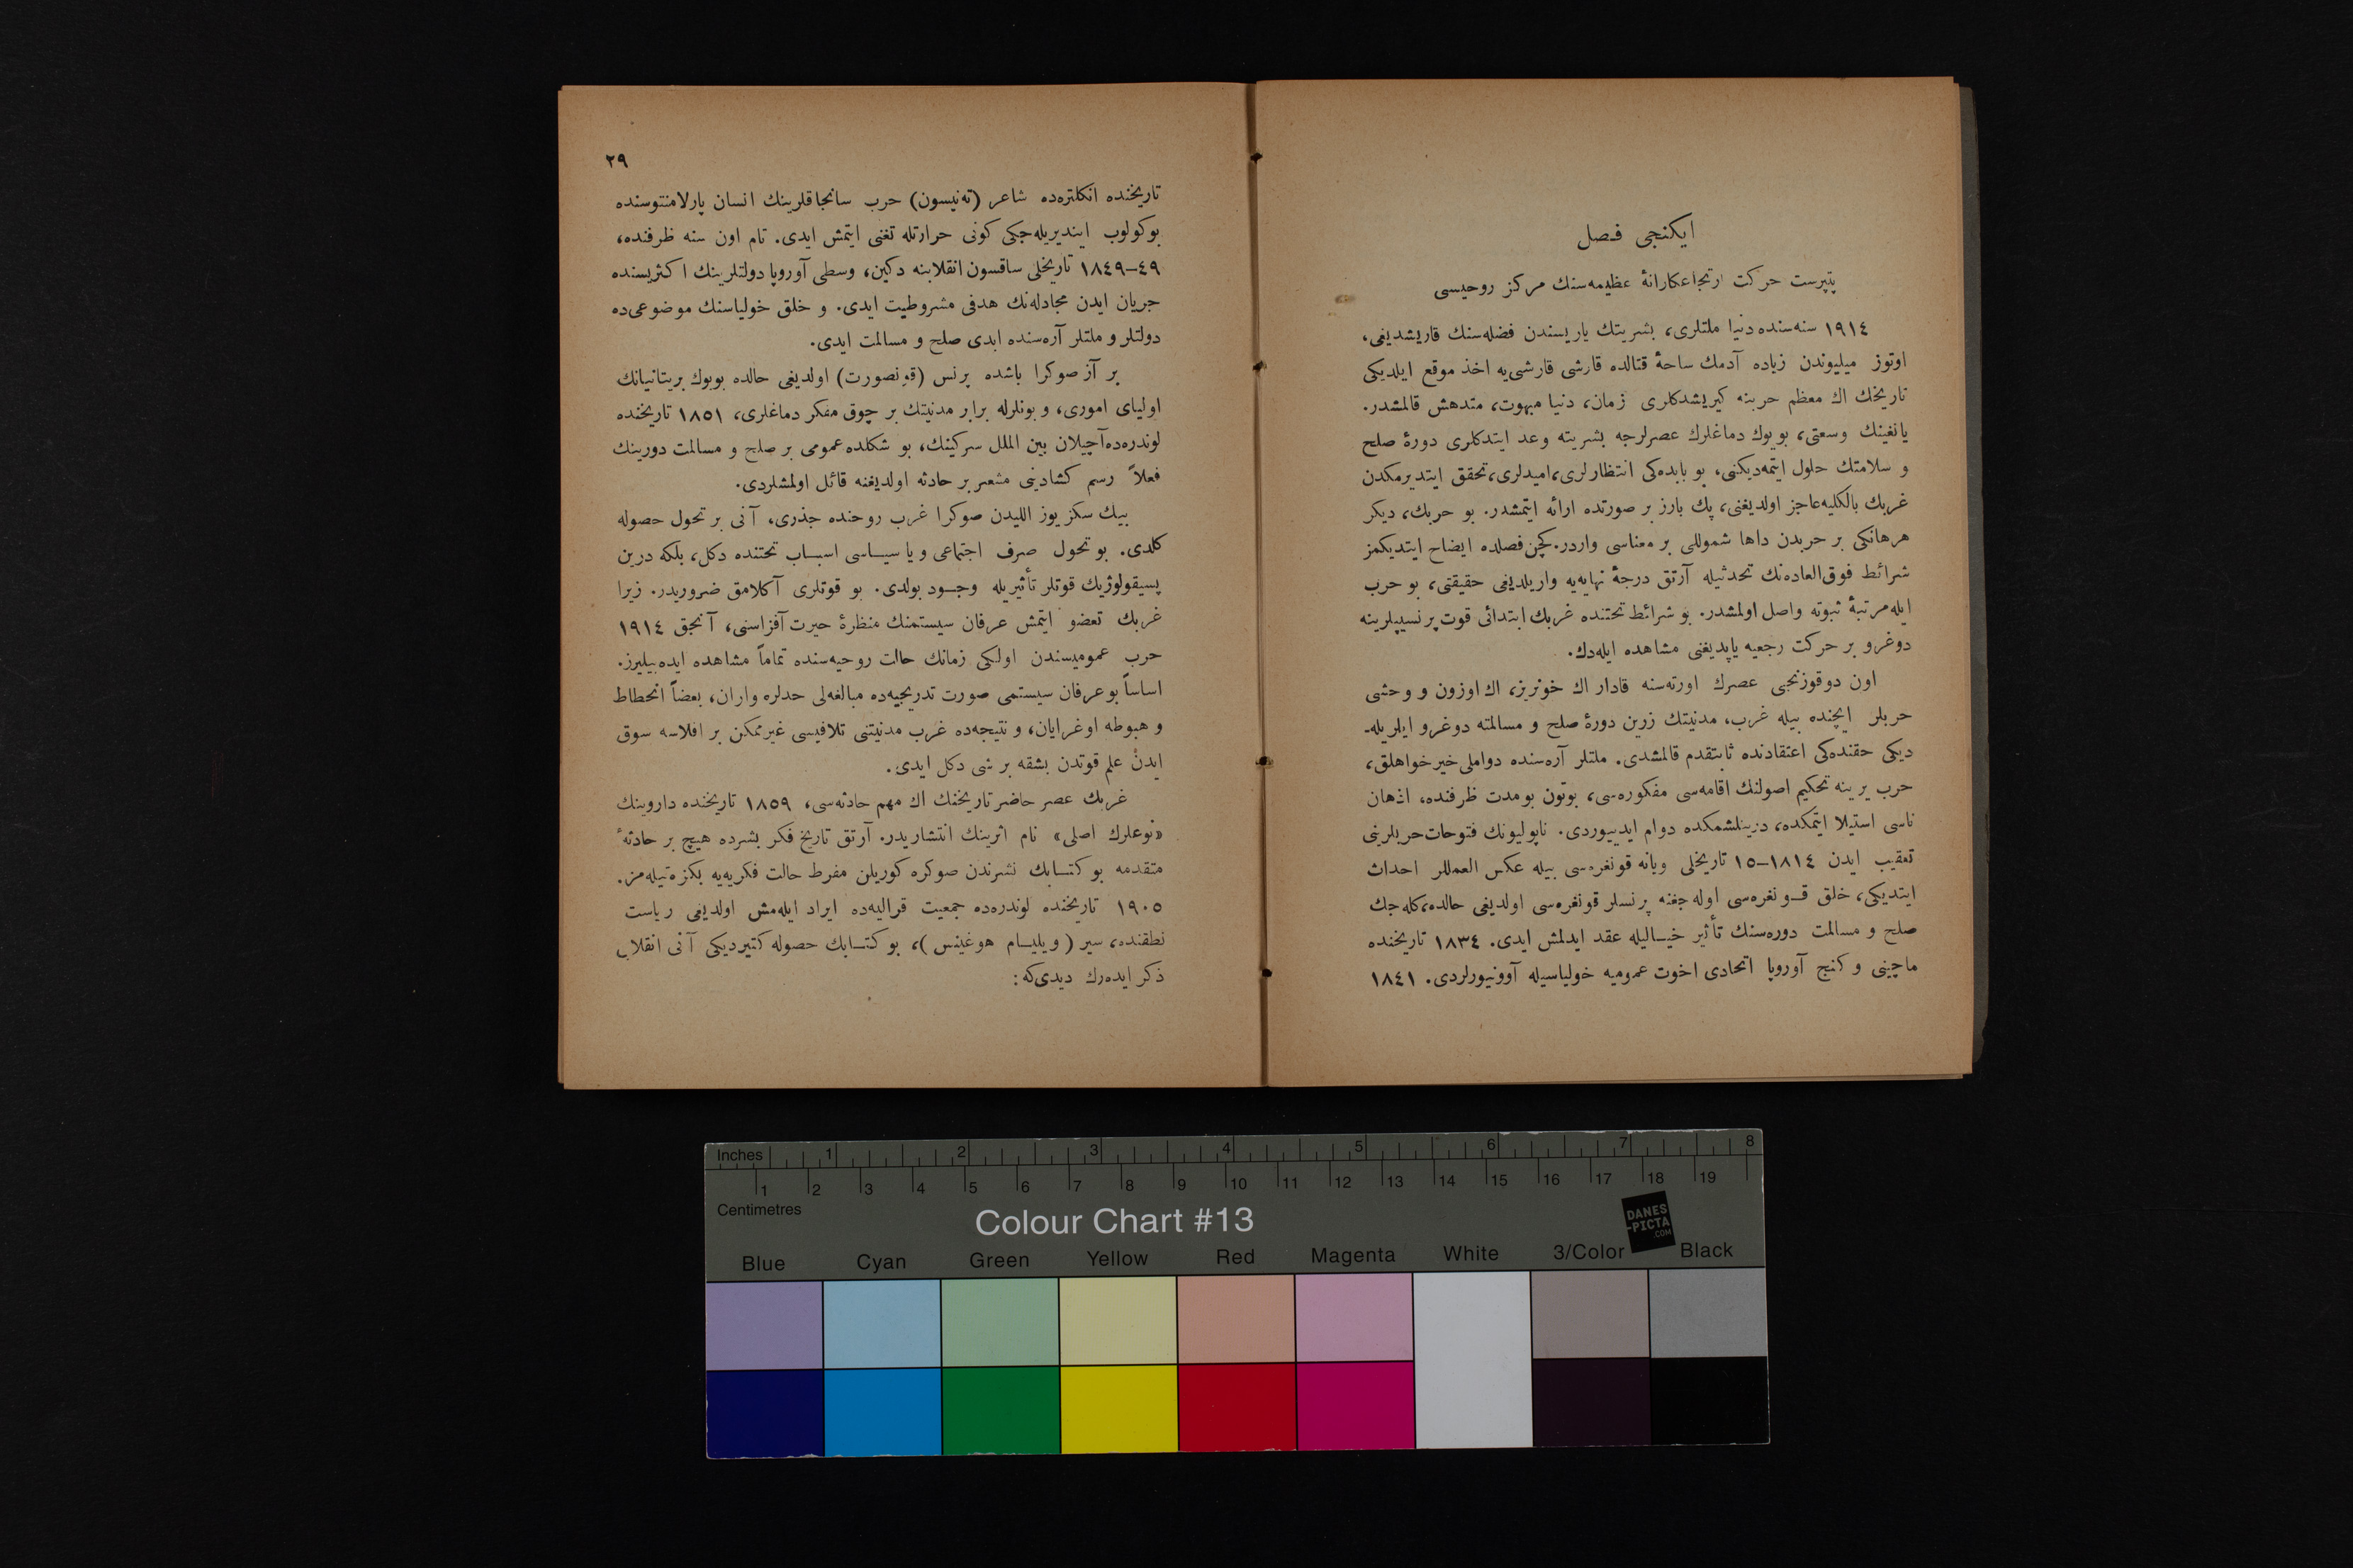 ایکنجی فصل
پتپرست حرکت ارتجاعکارانهٔ عظیمه‌سنك مرکز روحیسی
١٩١٤ سنه‌سنده دنیا ملتلری، بشریتك یاریسندن فضله‌سنك قاریشدیغی،
اوتوز میلیوندن زیاده آدمك ساحهٔ قتالده قارشی قارشی‌یه اخذ موقع ایلدیکی
تاریخك اك معظم حربنه کیریشدکلری زمان، دنیا مبهوت، متدهش قالمشدر.
یانغینك وسعتی، بویوك دماغلرك عصرلرجه بشریته وعد ایتدکلری دورهٔ صلح
و سلامتك حلول ایتمه‌دیکنی، بو بابده‌کی انتظارلری، امیدلری، تحقق ایتدیرمکدن
غربك بالکلیه عاجز اولدیغنی، پك بارز بر صورتده ارائه ایتمشدر. بو حربك، دیکر
هرهانکی بر حربدن داها شموللی بر معناسی واردر. کچن فصلده ایضاح ایتدیکمز
شرائط فوق‌العاده‌نك تحدثیله آرتق درجهٔ نهایه‌یه واریلدیغی حقیقتی، بو حرب
ایله مرتبهٔ ثبوته واصل اولمشدر. بو شرائط تحتنده غربك ابتدائی قوت پرنسیپلرینه
دوغرو بر حرکت رجعیه یاپدیغنی مشاهده ایله‌دك.
اون دوقوزنجی عصرك اورته‌سنه قادار اك خونریز، اك اوزون و وحشی
حربلر ایچنده بیله غرب، مدنیتك زرین دورهٔ صلح و مسالمته دوغرو ایلریله-
دیکی حقنده‌کی اعتقادنده ثابتقدم قالمشدی. ملتلر آره‌سنده دواملی خیرخواهلق،
حرب یرینه تحکیم اصولنك اقامه‌سی مفکوره‌سی، بوتون بو مدت ظرفنده، اذهان
ناسی استیلا ایتمکده، درینلشمکده دوام ایدییوردی. ناپولیونك فتوحات حربلرینی
تعقیب ایدن ١٨١٤–١٥ تاریخلی ویانه قونغره‌سی بیله عکس العمللر احداث
ایتدیکی، خلق قونغره‌سی اوله‌جغنه پرنسلر قونغره‌سی اولدیغی حالده، کله‌جك
صلح و مسالمت دوره‌سنك تأثیر خیالیله عقد ایدلمش ایدی. ١٨٣٤ تاریخنده
ماچینی و کنج آوروپا اتحادی اخوت عمومیه خولیاسیله آوونیورلردی. ١٨٤١
٢٩
تاریخنده انکلتره‌ده شاعر (ته‌نیسون) حرب سانجاقلرینك انسان پارلامنتوسنده
بوکولوب ایندیریله‌جکی کونی حرارتله تغنی ایتمش ایدی. تام اون سنه ظرفنده،
١٨٤٩–٤٩ تاریخلی ساقسون انقلابنه دکین، وسطی آوروپا دولتلرینك اکثریسنده
جریان ایدن مجادله‌نك هدفی مشروطیت ایدی. و خلق خولیاسنك موضوعی‌ده
دولتلر و ملتلر آره‌سنده ابدی صلح و مسالمت ایدی.
بر آز صوکرا باشده پرنس (قونصورت) اولدیغی حالده بویوك بریتانیانك
اولیای اموری، و بونلرله برابر مدنیتك بر چوق مفکر دماغلری، ١٨٥١ تاریخنده
لوندره‌ده آچیلان بین الملل سرکینك، بو شکلده عمومی بر صلح و مسالمت دورینك
فعلاً رسم کشادینی مشعر بر حادثه اولدیغنه قائل اولمشلردی.
بیك سکز یوز اللیدن صوکرا غرب روحنده جذری، آنی بر تحول حصوله
کلدی. بو تحول صرف اجتماعی و یا سیاسی اسباب تحتنده دکل، بلکه درین
پسیقولوژیك قوتلر تأثیریله وجود بولدی. بو قوتلری آکلامق ضروریدر. زیرا
غربك تعضو ایتمش عرفان سیستمنك منظرهٔ حیرت آفزاسنی، آنجق ١٩١٤
حرب عمومیسندن اولکی زمانك حالت روحیه‌سنده تماماً مشاهده ایده‌بیلیرز.
اساساً بو عرفان سیستمی صورت تدریجیه‌ده مبالغه‌لی حدلره واران، بعضاً انحطاط
و هبوطه اوغرایان، و نتیجه‌ده غرب مدنیتنی تلافیسی غیرممکن بر افلاسه سوق
ایدن علم قوتدن بشقه بر شی دکل ایدی.
غربك عصر حاضر تاریخنك اك مهم حادثه‌سی، ١٨٥٩ تاریخنده داروینك
«نوعلرك اصلی» نام اثرینك انتشاریدر. آرتق تاریخ فکر بشرده هیچ بر حادثهٔ
متقدمه بو کتابك نشرندن صوکره کوریلن مفرط حالت فکریه‌یه بکزه‌تیله‌مز.
١٩٠٥ تاریخنده لوندره‌ده جمعیت قرالیه‌ده ایراد ایله‌مش اولدیغی ریاست
نطقنده، سیر (ویلیام هوغینس)، بو کتابك حصوله کتیردیکی آنی انقلابی
ذکر ایده‌رك دیدی‌که:
Inches 1 2 3 4 5 6 7 8
1 2 3 4 5 6 7 8 9 10 11 12 13 14 15 16 17 18 19
Centimetres
Colour Chart #13
DANES
-PICTA
.COM
Blue Cyan Green Yellow Red Magenta White 3/Color Black